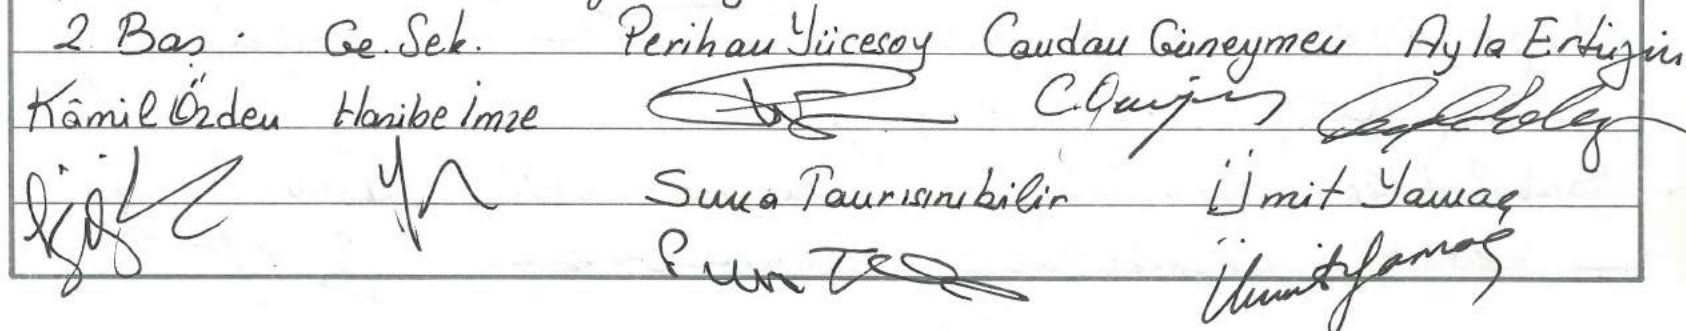 2. Baş. Ge. Sek. Perihan Yücesoy Candan Güneymen Ayla Ertüzün
Kâmil Özden Hanibe İmze
Suna Tanrısınıbilir Ümit Yamaç
Ümit Yamaç